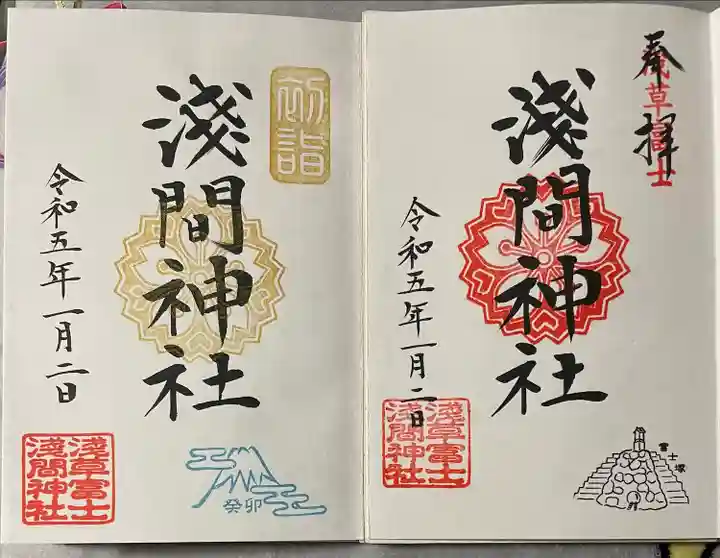 奉拝
浅草富士
淺間神社
令和五年一月二日
淺草富士
淺間神社
富士塚
初詣
淺間神社
令和五年一月二日
淺草富士
淺間神社
癸卯